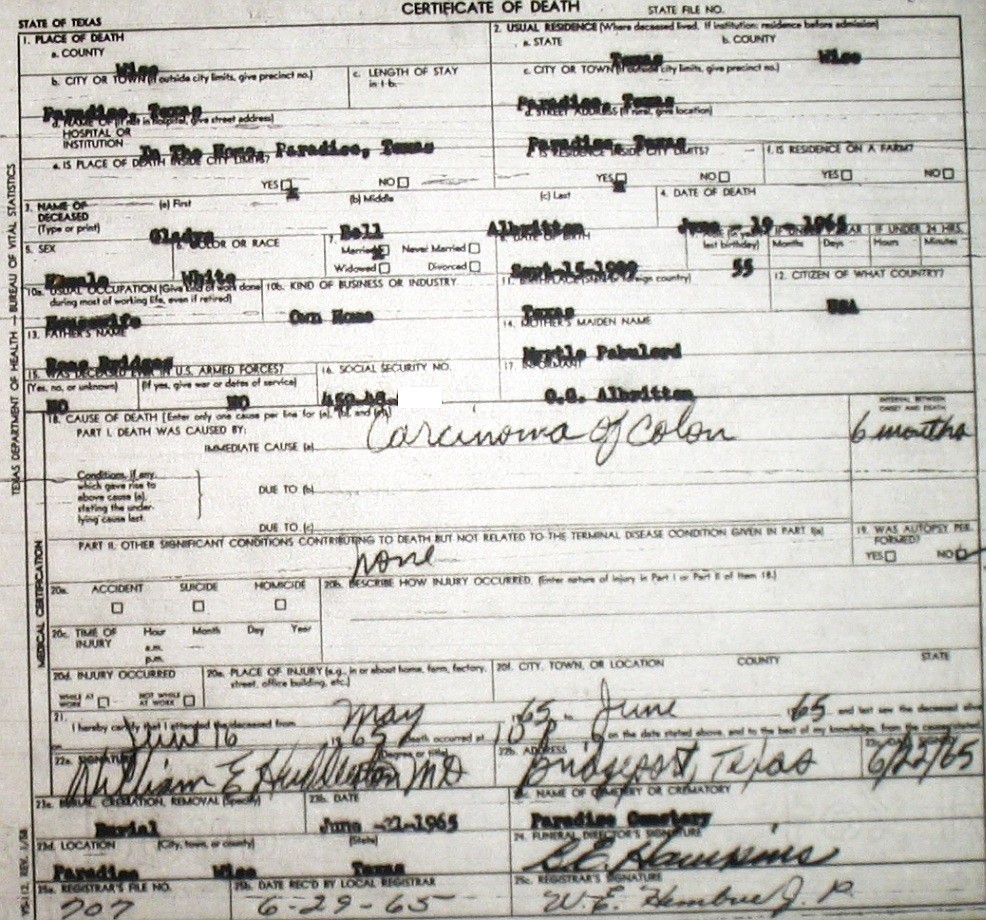 CERTIFICATE OF DEATH
STATE OF TEXAS STATE FILE NO.
1. PLACE OF DEATH
a. COUNTY
Wise
2. USUAL RESIDENCE (Where deceased lived. If institution: residence before admission)
a. STATE
Texas
b. COUNTY
Wise
b. CITY OR TOWN (If outside city limits, give precinct no.)
Paradise, Texas
c. LENGTH OF STAY in 1-b.
c. CITY OR TOWN (If outside city limits, give precinct no.)
Paradise, Texas
d. NAME OF (If not in hospital, give street address)
HOSPITAL OR
INSTITUTION
In The Home, Paradise, Texas
d. STREET ADDRESS (If rural, give location)
Paradise, Texas
e. IS PLACE OF DEATH INSIDE CITY LIMITS?
YES NO
e. IS RESIDENCE INSIDE CITY LIMITS?
YES NO
f. IS RESIDENCE ON A FARM?
YES NO
3. NAME OF
DECEASED
(Type or print)
(a) First
Gladys
(b) Middle
Bell
(c) Last
Albritton
4. DATE OF DEATH
June - 19 - 1965
5. SEX
Female
6. COLOR OR RACE
White
7.
Married Never Married
Widowed Divorced
8. DATE OF BIRTH
Sept-15-1909
last birthday)
55
IF UNDER 24 HRS.
Months Days Hours Minutes
10a. USUAL OCCUPATION (Give kind of work done
during most of working life, even if retired)
Housewife
10b. KIND OF BUSINESS OR INDUSTRY
Own Home
11. BIRTHPLACE (State or foreign country)
Texas
12. CITIZEN OF WHAT COUNTRY?
USA
13. FATHER'S NAME
Bridges
14. MOTHER'S MAIDEN NAME
Myrtle
15. WAS DECEASED EVER IN U.S. ARMED FORCES?
(Yes, no, or unknown)
NO
(If yes, give war or dates of service)
NO
16. SOCIAL SECURITY NO.
17. INFORMANT
O.G. Albritton
18. CAUSE OF DEATH [Enter only one cause per line for (a), (b), and (c).]
PART I. DEATH WAS CAUSED BY:
IMMEDIATE CAUSE (a) Carcinoma of Colon
INTERVAL BETWEEN
ONSET AND DEATH
6 months
Conditions, if any,
which gave rise to
above cause (a),
stating the under-
lying cause last.
DUE TO (b)
DUE TO (c)
PART II. OTHER SIGNIFICANT CONDITIONS CONTRIBUTING TO DEATH BUT NOT RELATED TO THE TERMINAL DISEASE CONDITION GIVEN IN PART I(a)
none
19. WAS AUTOPSY PER-
FORMED?
YES NO
20a. ACCIDENT SUICIDE HOMICIDE
20b. DESCRIBE HOW INJURY OCCURRED. (Enter nature of injury in Part I or Part II of Item 18.)
20c. TIME OF
INJURY
Hour Month Day Year
a.m.
p.m.
20d. INJURY OCCURRED
WHILE AT
WORK
NOT WHILE
AT WORK
20e. PLACE OF INJURY (e.g., in or about home, farm, factory,
street, office building, etc.)
20f. CITY, TOWN, OR LOCATION COUNTY STATE
21.
I hereby certify that I attended the deceased from May 1965 to June 1965 and last saw the deceased alive
on June 16 1965 Death occurred at 10 P on the date stated above, and to the best of my knowledge, from the causes
22a. SIGNATURE (Degree or title)
William E Huddleston MD
22b. ADDRESS
Bridgeport, Texas
6/22/65
23a. BURIAL, CREMATION, REMOVAL (Specify)
Burial
23b. DATE
June -21-1965
23c. NAME OF CEMETERY OR CREMATORY
Paradise Cemetery
23d. LOCATION (City, town, or county) (State)
Paradise Wise Texas
24. FUNERAL DIRECTOR'S SIGNATURE
B.E. Hawkins
25a. REGISTRAR'S FILE NO.
707
25b. DATE REC'D BY LOCAL REGISTRAR
6-29-65
25c. REGISTRAR'S SIGNATURE
W. E. J. P.
TEXAS DEPARTMENT OF HEALTH — BUREAU OF VITAL STATISTICS
MEDICAL CERTIFICATION
VS-112, REV. 1/58